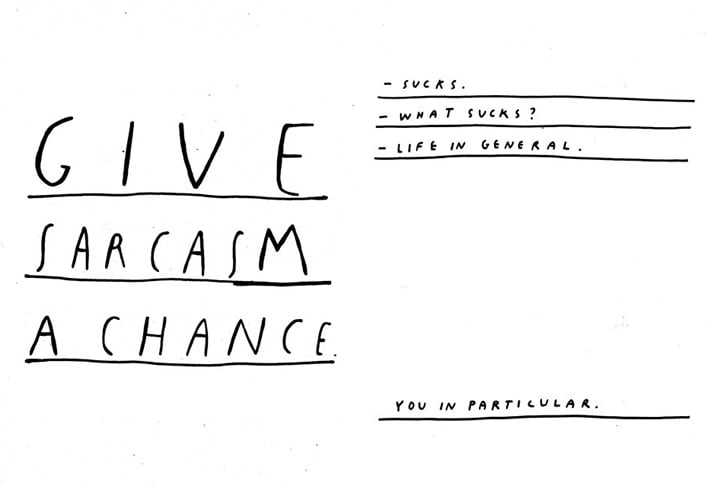 GIVE
SARCASM
A CHANCE.
- SUCKS.
- WHAT SUCKS?
- LIFE IN GENERAL.
YOU IN PARTICULAR.